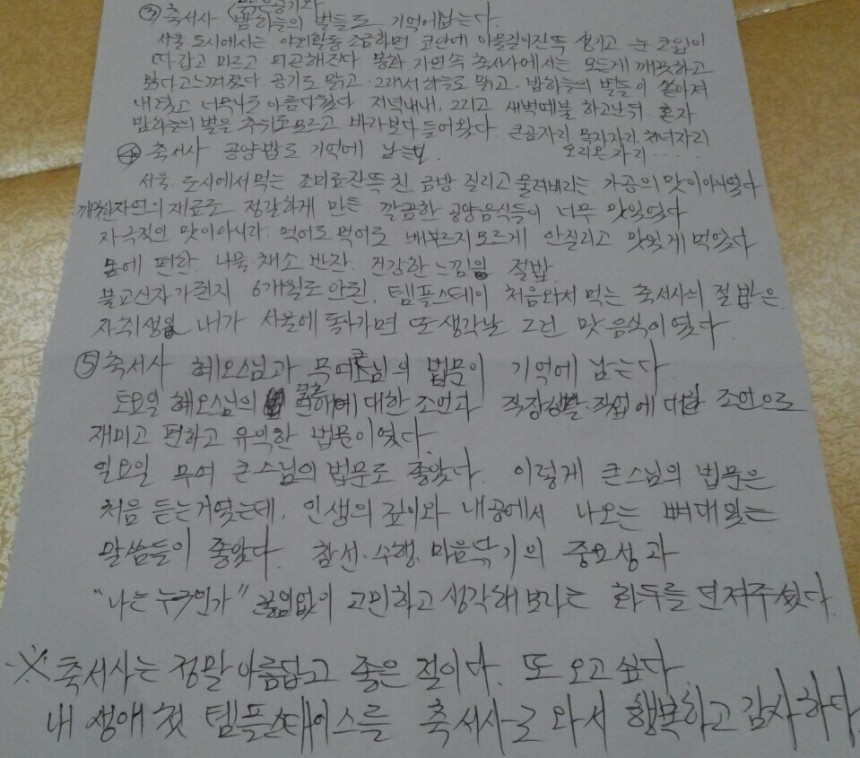 맑은공기와
③ 축서사 밤하늘의 별들도 기억에남는다.
서울 도시에서는 야외활동 조금하면 코안에 이물질이잔뜩 생기고 눈 코입이
따갑고 마르고 피곤해진다 봉화 자연속 축서사에서는 모든게 깨끗하고
맑다고느껴졌다 공기도 맑고 그래서하늘도 맑고. 밤하늘의 별들이 쏟아져
내렸고 너무나도 아름다웠다 저녁내내, 그리고 새벽예불 하고난뒤 혼자
밤하늘의 별을 추위도모르고 바라보다 들어왔다 큰곰자리 목자자리 처녀자리
오리온자리 ....
④ 축서사 공양밥도 기억에 남는다.
서울 도시에서 먹는 조미료잔뜩 친 금방 질리고 물려버리는 가공의 맛이아니었다
깨끗한자연의 재료로 정갈하게 만든 깔끔한 공양음식들이 너무 맛있었다
자극적인 맛이아니라, 먹어도 먹어도 배부르지모르게 안질리고 맛있게 먹었다
몸에 편한, 나물 채소 반찬, 건강한 느낌의 절밥.
불교신자가된지 6개월도 안된, 템플스테이 처음와서 먹는 축서사의 절밥은
자취생인 내가 서울에 돌아가면 또 생각날 그런 맛 음식이였다
⑤ 축서사 혜오스님과 무여큰스님의 법문이 기억에 남는다
토요일 혜오스님의 대한 조언과 직장생활·직업에 대한 조언으로
재미고 편하고 유익한 법문이였다.
일요일 무여 큰스님의 법문도 좋았다. 이렇게 큰스님의 법문은
처음 듣는거였는데, 인생의 깊이와 내공에서 나오는 뼈대있는
말씀들이 좋았다. 참선·수행, 마음닦기의 중요성과
"나는 누구인가" 끊임없이 고민하고 생각해 보라는 화두를 던져주셨다.
※ 축서사는 정말 아름답고 좋은 절이다. 또 오고 싶다.
내 생애 첫 템플스테이스를 축서사로 와서 행복하고 감사하다.